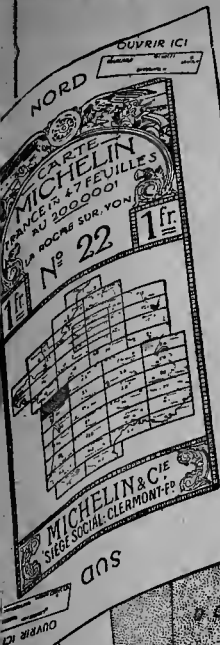 OUVRIR ICI
NORD
CARTE
MICHELIN
FRANCE IN 47 FEUILLES
AU 200.000!
LA ROCHE SUR YON
1fr. Nº 22 1fr.
MICHELIN & CIE
SIÈGE SOCIAL-CLERMONT-FD
SUD
OUVRIR ICI